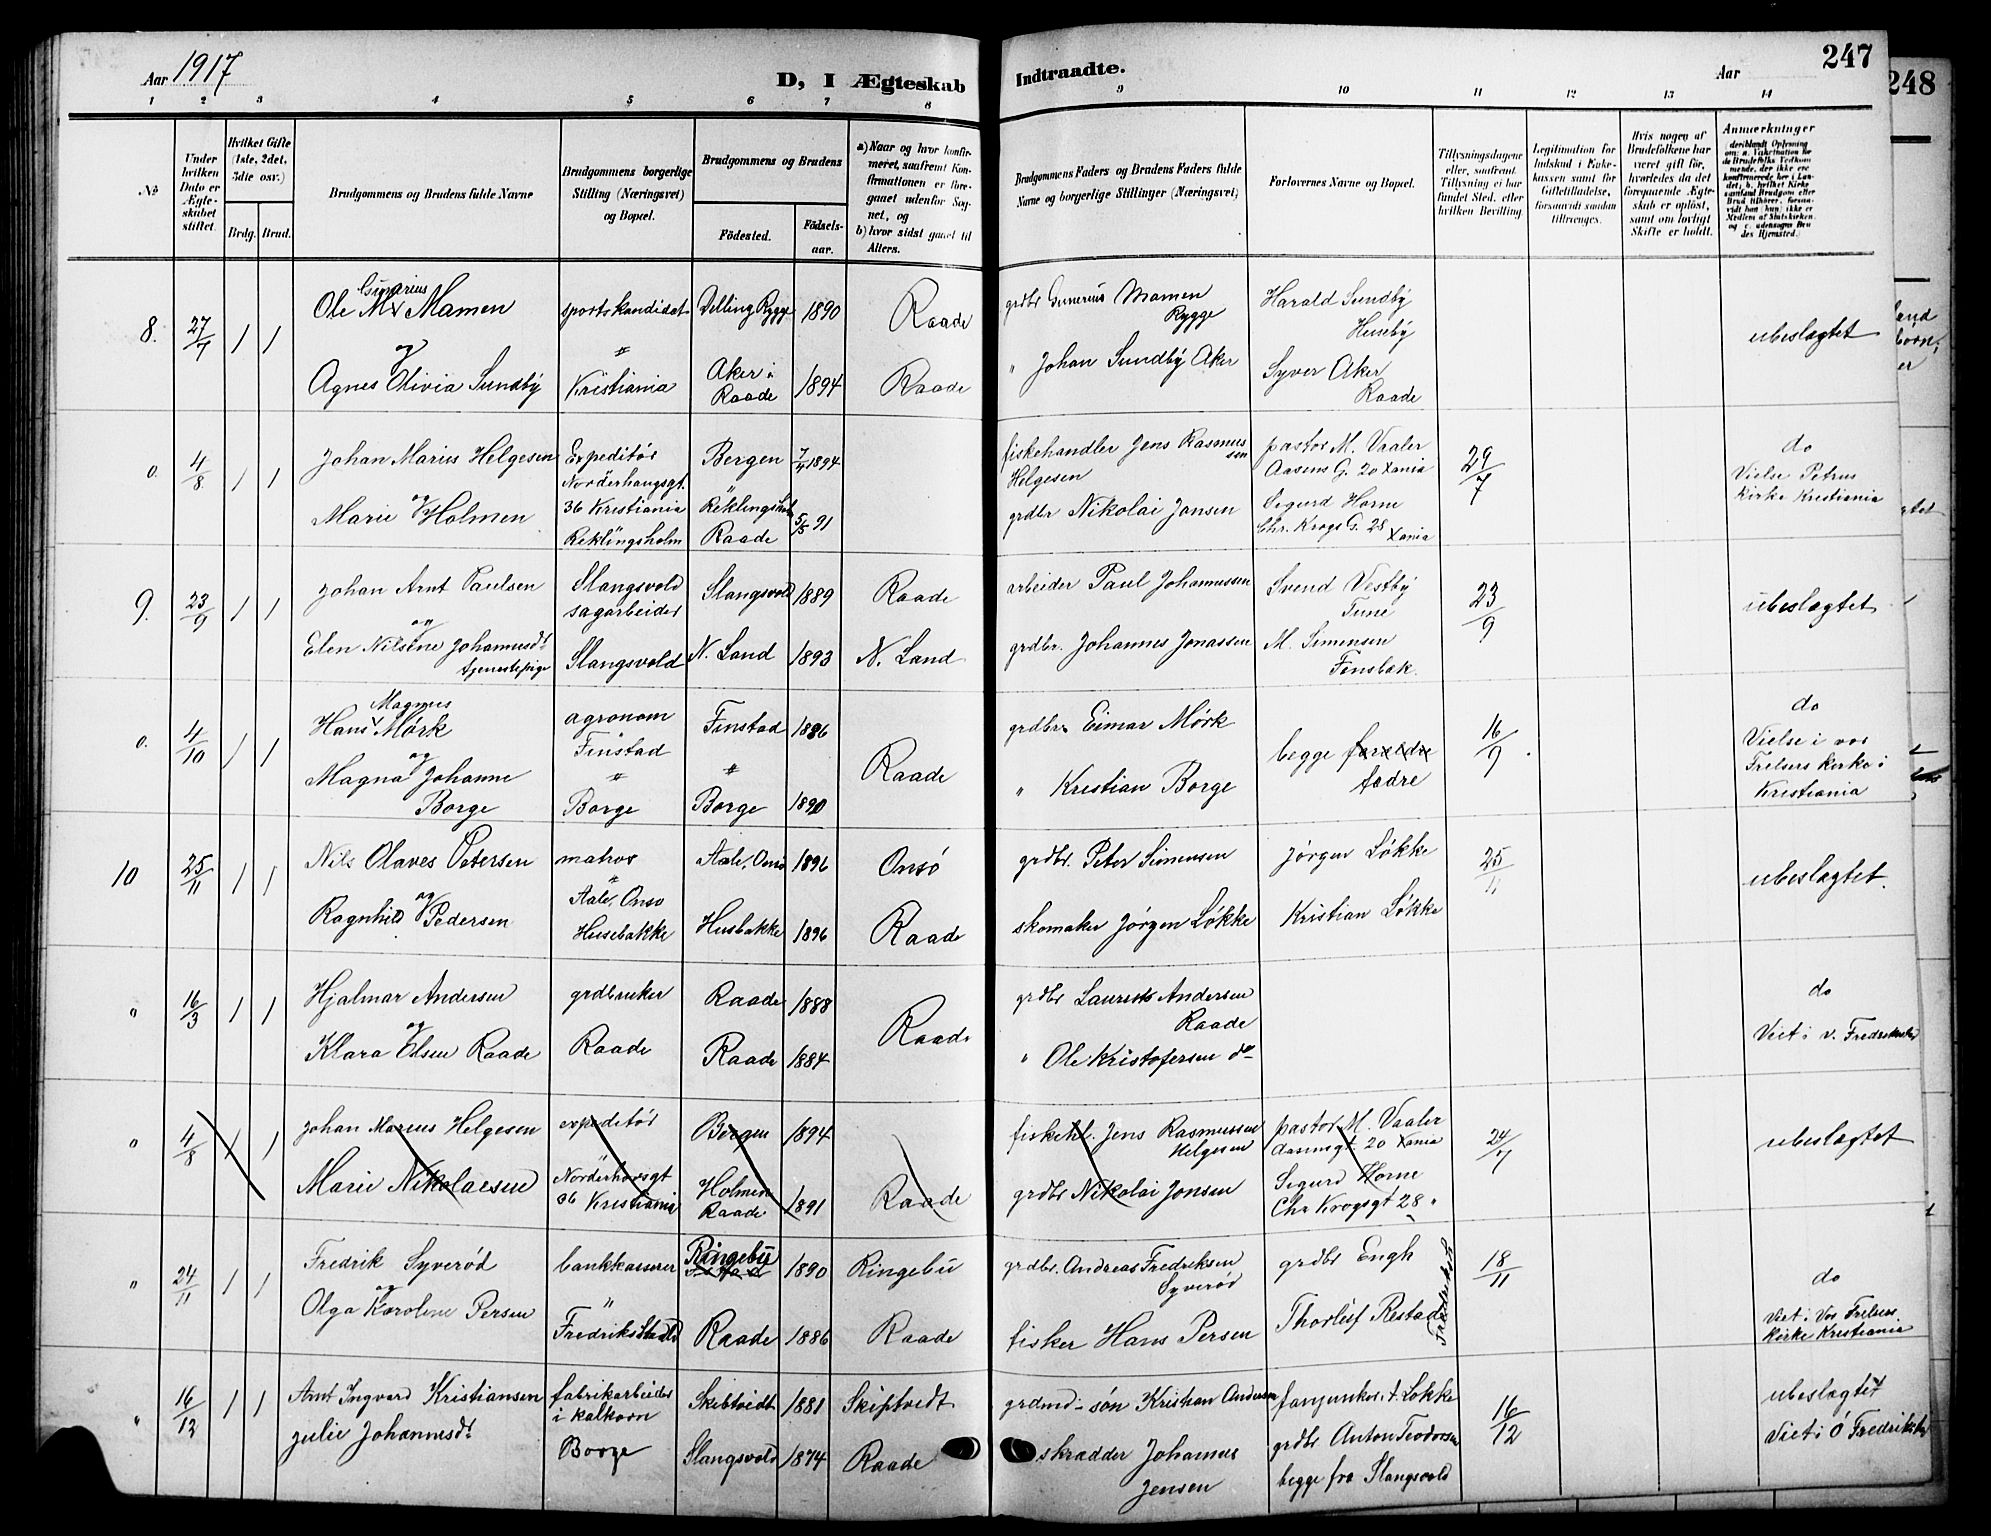 Aar 1917
D, I Ægteskab Indtraadte.
Aar
247
248
1 2 3 4 5 6 7 8 9 10 11 12 13 14
No
Under hvilken Dato er Ægteskabet stiftet.
Hvilket Gifte (1ste, 2det, 3die osv.)
Brdg. Brud.
Brudgommens og Brudens fulde Navne
Brudgommens borgerlige Stilling (Næringsvei) og Bopæl.
Brudgommens og Brudens
Födested.
Födselsaar.
a) Naar og hvor konfirmeret, saafremt Konfirmationen er foregaaet udenfor Sognet, og
b) hvor sidst gaaet til Alters.
Brudgommens Faders og Brudens Faders fulde Navne og borgerlige Stillinger (Næringsvei)
Forlovernes Navne og Bopæl.
Tillysningsdagene eller, saafremt Tillysning ei har fundet Sted, efter hvilken Bevilling.
Legitimation for Indskud i Enkekassen samt for Giftetilladelse, forsaavidt saadan tiltrænges.
Hvis nogen af Brudefolkene har været gift før, hvorledes da det foregaaende Ægteskab er opløst, samt om lovligt Skifte er holdt.
Anmærkninger
8. 27/7 1 1
Ole Gunerius Mamen
og
Agnes Olivia Sundby
sportskandidat
"
Kristiania
Delling Rygge 1890
Aker i Raade 1894
Raade
Raade
grdbr Gunerius Mamen
Rygge
" Johan Sundby Aker
Harald Sundby
Huseby
Syver Aker
Raade
ubeslegtet
0. 4/8 1 1
Johan Marius Helgesen
og
Marie Holmen
Expeditør
Norderhaugsgt.
36 Kristiania
Reklingsholm
Bergen 7/4 1894
Reklingsholm
Raade 5/5 91
fiskehandler Jens Rasmussen
Helgesen
grdbr Nikolai Jonsen
pastor M. Vaaler
Aasens G. 20 Xania
Sigurd Horne
Chr. Krogs G. 28 Xania
29/7
do
Vielse Petrus
kirke Kristiania
9. 23/9 1 1
Johan Arnt Paulsen
og
Elen Nilsine Johannesdt
tjenestepige
Slangsvold
sagarbeider
Slangsvold
Slangsvold 1889
N. Land 1893
Raade
N. Land
arbeider Paul Johannessen
grdbr. Johannes Jonassen
Svend Vestby
Tune
M. Simensen
Finsbæk.
23/9
ubeslegtet
0. 4/10 1 1
Hans Magnus Mørk
og
Magna Johanne
Borge
agronom
Finstad
"
Borge
Finstad 1886
"
Borge 1890
Raade
grdbr. Eimar Mørk
" Kristian Borge
begge forældre
fædre
16/9
do
Vielse i vor
Frelsers kirke i
Kristiania
10 25/11 1 1
Nils Olaves Petersen
og
Ragnhild Pedersen
matros
"
Aale, Onsø
Husebakke
Aale, Onsø 1896
Husbakke 1896
Onsø
Raade
grdbr. Peter Simensen
skomaker Jørgen Løkke
Jørgen Løkke
Kristian Løkke
25/11
ubeslegtet.
" 16/3 1 1
Hjalmar Andersen
og
Klara Elsen Raade
grdbruker
Raade
Raade 1888
Raade 1884
Raade
grdbr Laurits Andersen
Raade
" Ole Kristofersen do
do
Viet i v. Fredrikstad
0 4/8 1 1
Johan Marius Helgesen
Marie Nikolaesen
expeditør
Norderhovsgt
36 Kristiania
Bergen 1894
Holmen
Raade 1891
Raade
fiskehl. Jens Rasmussen
Helgesen
grdbr Nikolai Jonsen
pastor M. Vaaler
Aasensgt. 20 Xania
Sigurd Horne
Chr Krogsgt 28 "
24/7
ubeslegtet
" 24/11 1 1
Fredrik Syverød
og
Olga Karoline Persen
bankkasserer
"
Fredriksstad
Ringebu 1890
Raade 1886
Ringebu
Raade
grdbr. Andreas Fredriksen
Syverød
fisker Hans Persen
grdbr Engh
Thorleif Restad
Fredrikstad
18/11
do
Viet i Vor Frelsers
kirke Kristiania
" 16/12 1 1
Arnt Ingvard Kristiansen
Julie Johannesdt
fabrikarbeider
i kalkovn
Borge
Skibtvedt 1881
Slangsvold 1874
Skiptvedt
Raade
grdmd-søn Kristian Andersen
skrædder Johannes
Jensen
Løkke
grdbr Anton Teodorsen
begge fra Slangsvold
16/12
ubeslegtet
Viet i Ø Fredrikstad